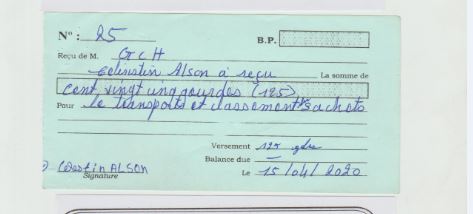 N° : 25
B.P.
Reçu de M. GCH
Celinstin Alson a reçu La somme de
Cent vingt cinq gourdes (125)
Pour le transports et classement sachets
Versement 125 gdes
Balance due —
Celestin ALSON Le 15/04/2020
Signature